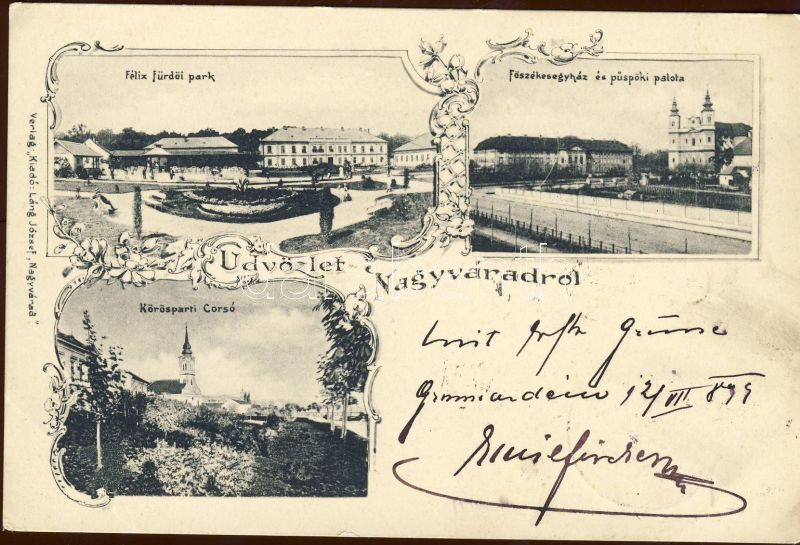 Félix fürdői park
Főszékesegyház és püspöki palota
Verlag "Kiadó: Láng József, Nagyvárad."
Üdvözlet
Nagyváradról
Körösparti Corsó
Grüsse
12/VII 899